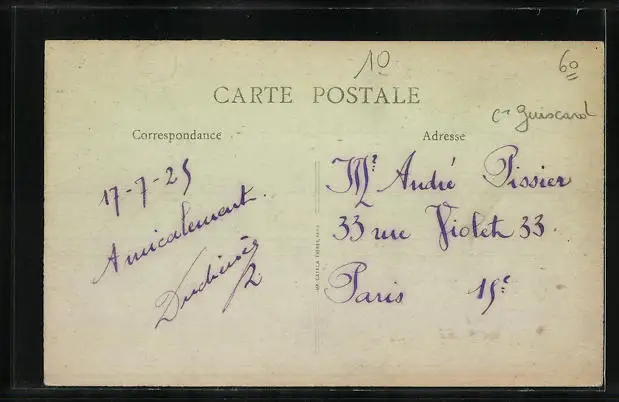 10
60
CARTE POSTALE
cn Guiscard
Correspondance
Adresse
17-7-25
Amicalement.
Mr André Pissier
33 rue Violet 33.
Paris 15e